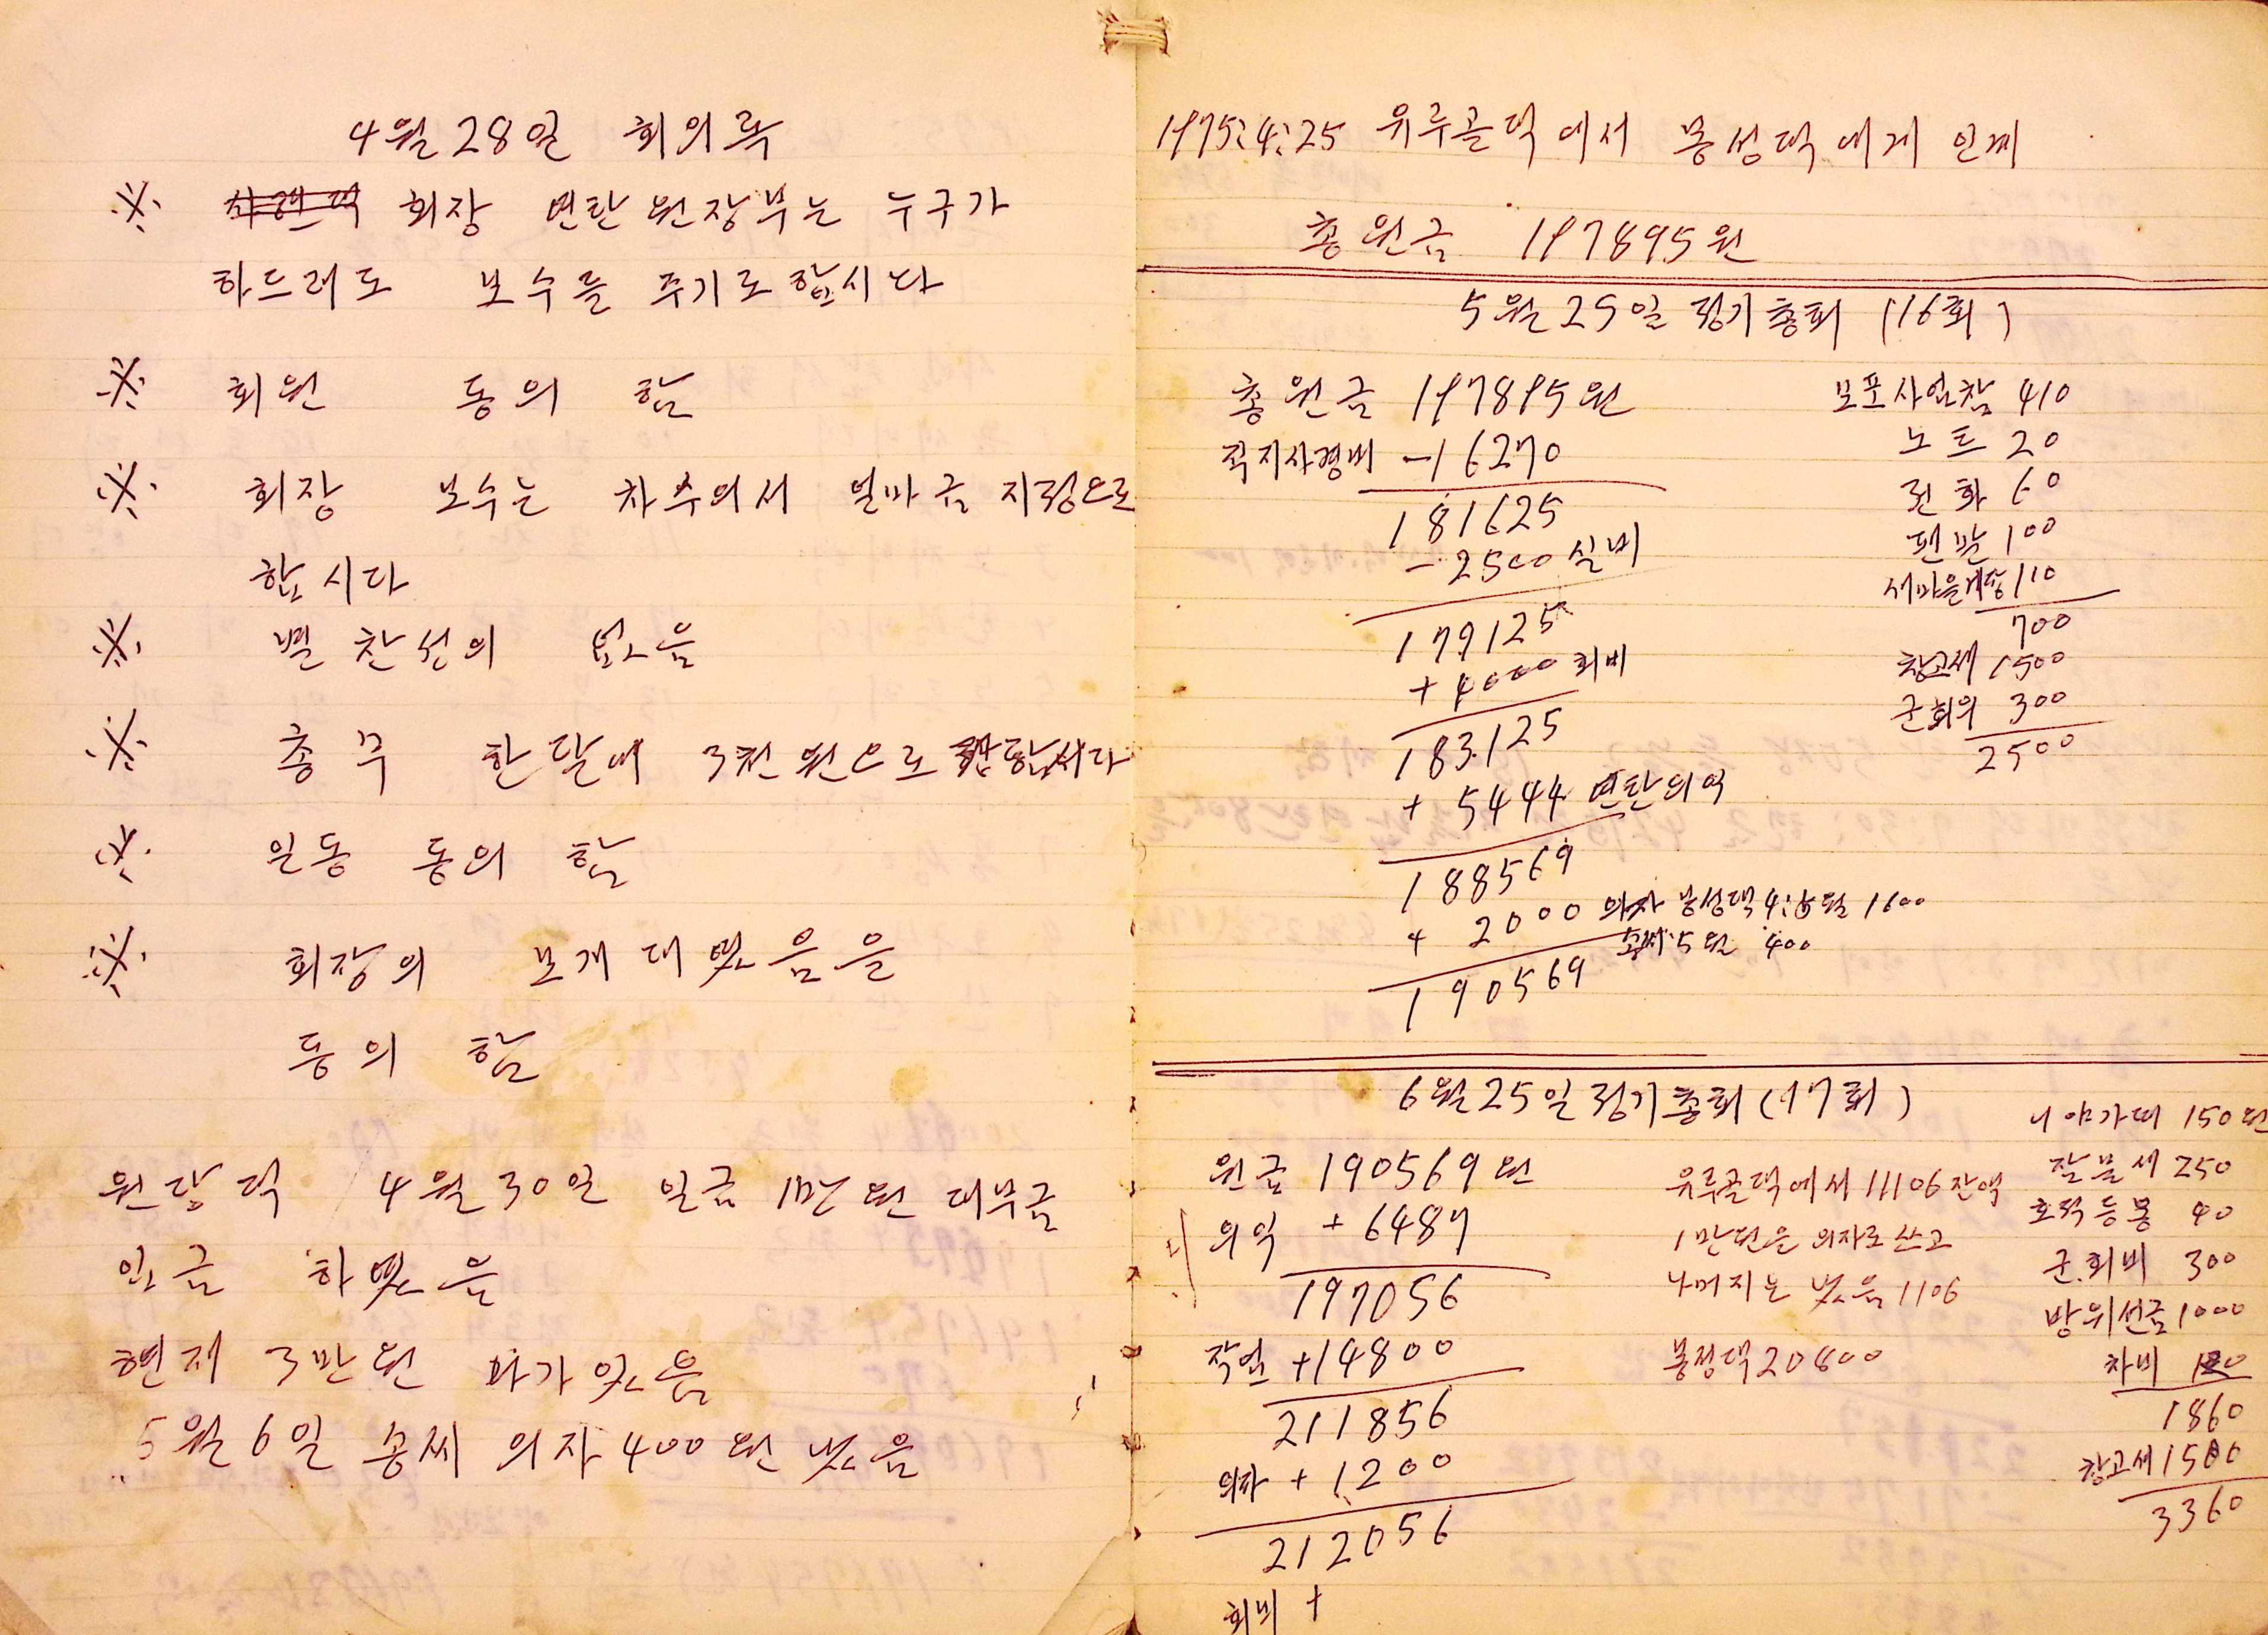 4월 28일 회의록
※ 회장 연탄 원장부는 누구가
하드레도 보수를 주기로 합시다
※ 회원 동의 함
※ 회장 보수는 차후의서 얼마금 지정으로
합시다
※ 별 찬선의 없음
※ 총무 한달에 3천원으로 합시다
※ 일동 동의 함
※ 회장의 보개 대였음을
동의 함
원당덕 4월 30일 일금 1만원 대부금
입금 하였음
현재 3만원 나가있음
5월 6일 송씨 의자 400원 냈음
1975:4:25 유루골덕에서 봉성덕에게 인께
총원금 197895원
5월 25일 정기총회 (16회)
총원금 197895원
직지사경비 -16270
181625
-2500 실비
179125
+4000 회비
183125
+5444 연탄의익
188569
+2000 의자 봉성댁 4:5월 1600
송씨 5월 400
190569
보포사업참 410
노트 20
전화 60
펜판 100
새마을게장 110
700
창고세 1500
군회의 300
2500
6월 25일 정기총회 (17회)
원금 190569원
의익 +6487
197056
작업 +14800
211856
의자 +1200
212056
회비 +
유루골댁에서 11106 잔액
1만원은 의자로 쓰고
나머지는 냈음 1106
봉정댁 20800
니야가때 150원
잘물세 250
호적등봉 40
군.회비 300
방위선금 1000
차비 120
1860
창고세 1500
3360